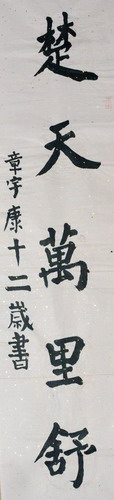 楚天萬里舒
章宇康十二歲書